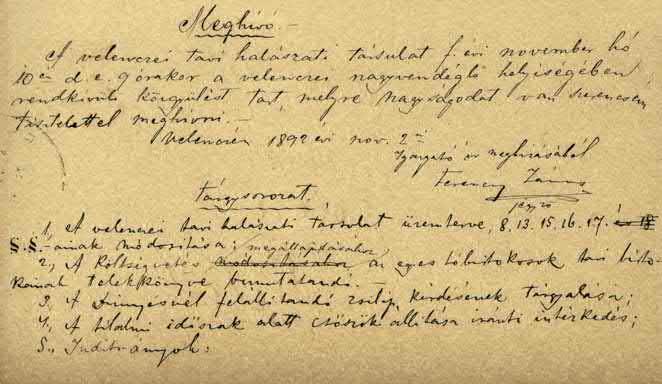 Meghívó. –
A velenczei tavi halászati társulat f. évi november hó
10én d. e. 9 órakor a velenczei nagyvendéglő helyiségében
rendkívüli közgyűlést tart, melyre Nagyságodat van szerencsém
tisztelettel meghívni. –
Velenczén 1892 évi nov. 2án
Igazgató úr megbízásából
Ferenczy János
jegyző
Tárgysorozat.
1, A velenczei tavi halászati társulat üzemterve, 8. 13. 15. 16. 17. és 18
§.§.-ainak módosítása;
megállapításához
2, A költségvetés módosításához az egyes tóbirtokosok tavi birto-
kainak telekkönyve bemutatandó. –
3, A Dinnyésnél felállítandó zsilip kérdésének tárgyalása;
4, A tilalmi időszak alatt csőszök állítása iránti intézkedés;
5., Indítványok.